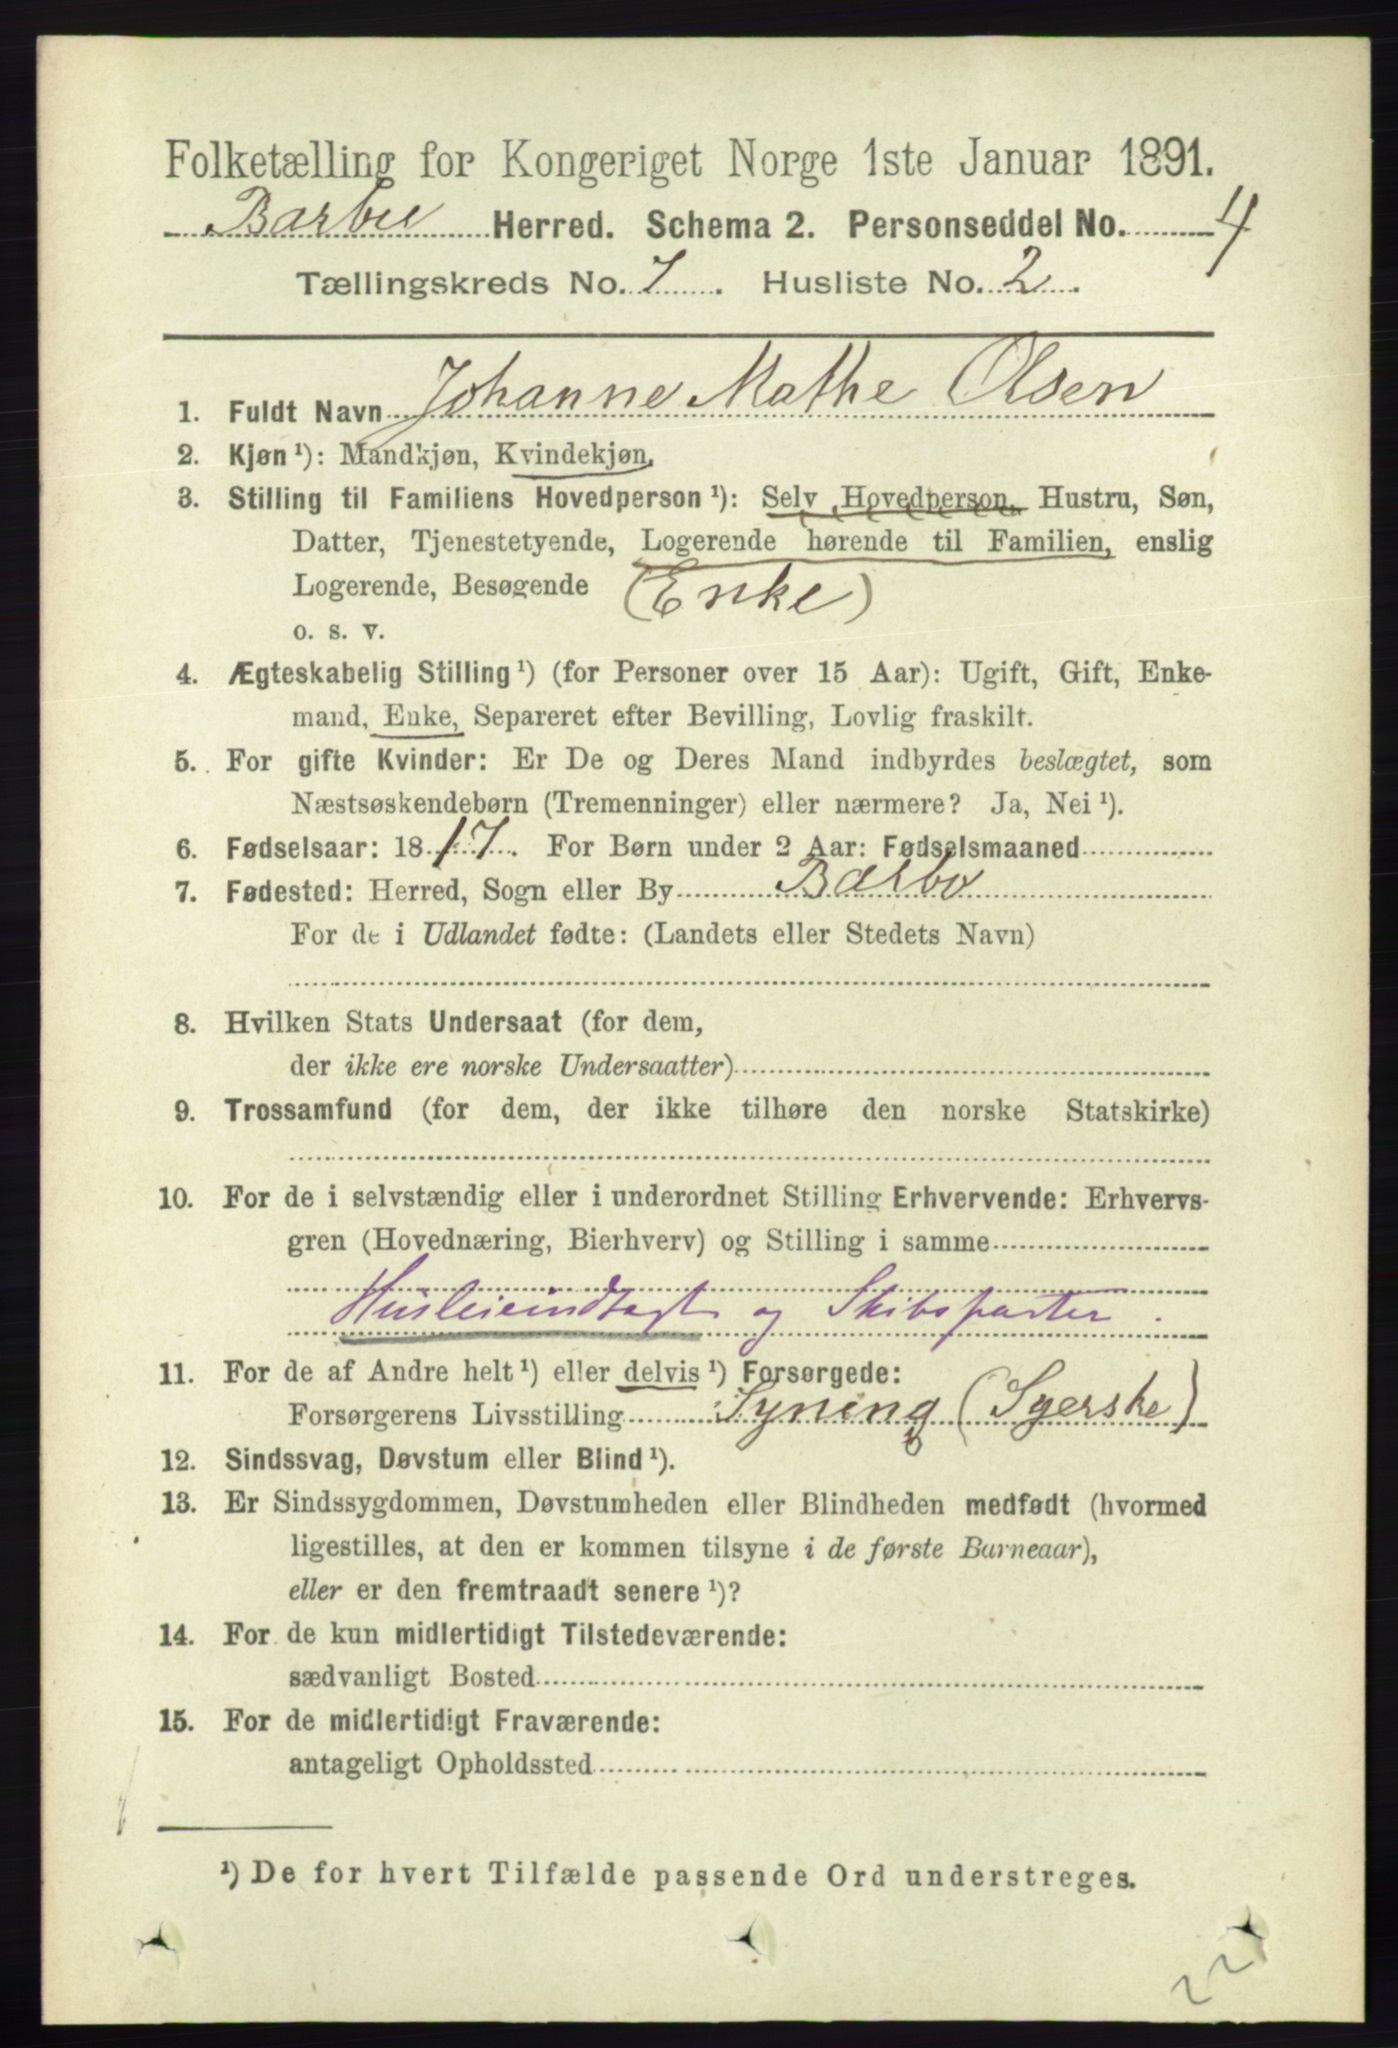 Folketælling for Kongeriget Norge 1ste Januar 1891.
Barbu Herred. Schema 2. Personseddel No. 4
Tællingskreds No. 7. Husliste No. 2.
1. Fuldt Navn Johanne Mathe Olsen
2. Kjøn¹): Mandkjøn, Kvindekjøn.
3. Stilling til Familiens Hovedperson¹): Selv Hovedperson, Hustru, Søn,
Datter, Tjenestetyende, Logerende hørende til Familien, enslig
Logerende, Besøgende (Enke)
o. s. v.
4. Ægteskabelig Stilling¹) (for Personer over 15 Aar): Ugift, Gift, Enke-
mand, Enke, Separeret efter Bevilling, Lovlig fraskilt.
5. For gifte Kvinder: Er De og Deres Mand indbyrdes beslægtet, som
Næstsøskendebørn (Tremenninger) eller nærmere? Ja, Nei¹).
6. Fødselsaar: 1817. For Børn under 2 Aar: Fødselsmaaned
7. Fødested: Herred, Sogn eller By Barbo
For de i Udlandet fødte: (Landets eller Stedets Navn)
8. Hvilken Stats Undersaat (for dem,
der ikke ere norske Undersaatter)
9. Trossamfund (for dem, der ikke tilhøre den norske Statskirke)
10. For de i selvstændig eller i underordnet Stilling Erhvervende: Erhvervs-
gren (Hovednæring, Bierhverv) og Stilling i samme
Husleieindtægt og Skibsparter.
11. For de af Andre helt¹) eller delvis¹) Forsørgede:
Forsørgerens Livsstilling Syning (Syerske)
12. Sindssvag, Døvstum eller Blind¹).
13. Er Sindssygdommen, Døvstumheden eller Blindheden medfødt (hvormed
ligestilles, at den er kommen tilsyne i de første Barneaar),
eller er den fremtraadt senere¹)?
14. For de kun midlertidigt Tilstedeværende:
sædvanligt Bosted
15. For de midlertidigt Fraværende:
antageligt Opholdssted
¹) De for hvert Tilfælde passende Ord understreges.
22